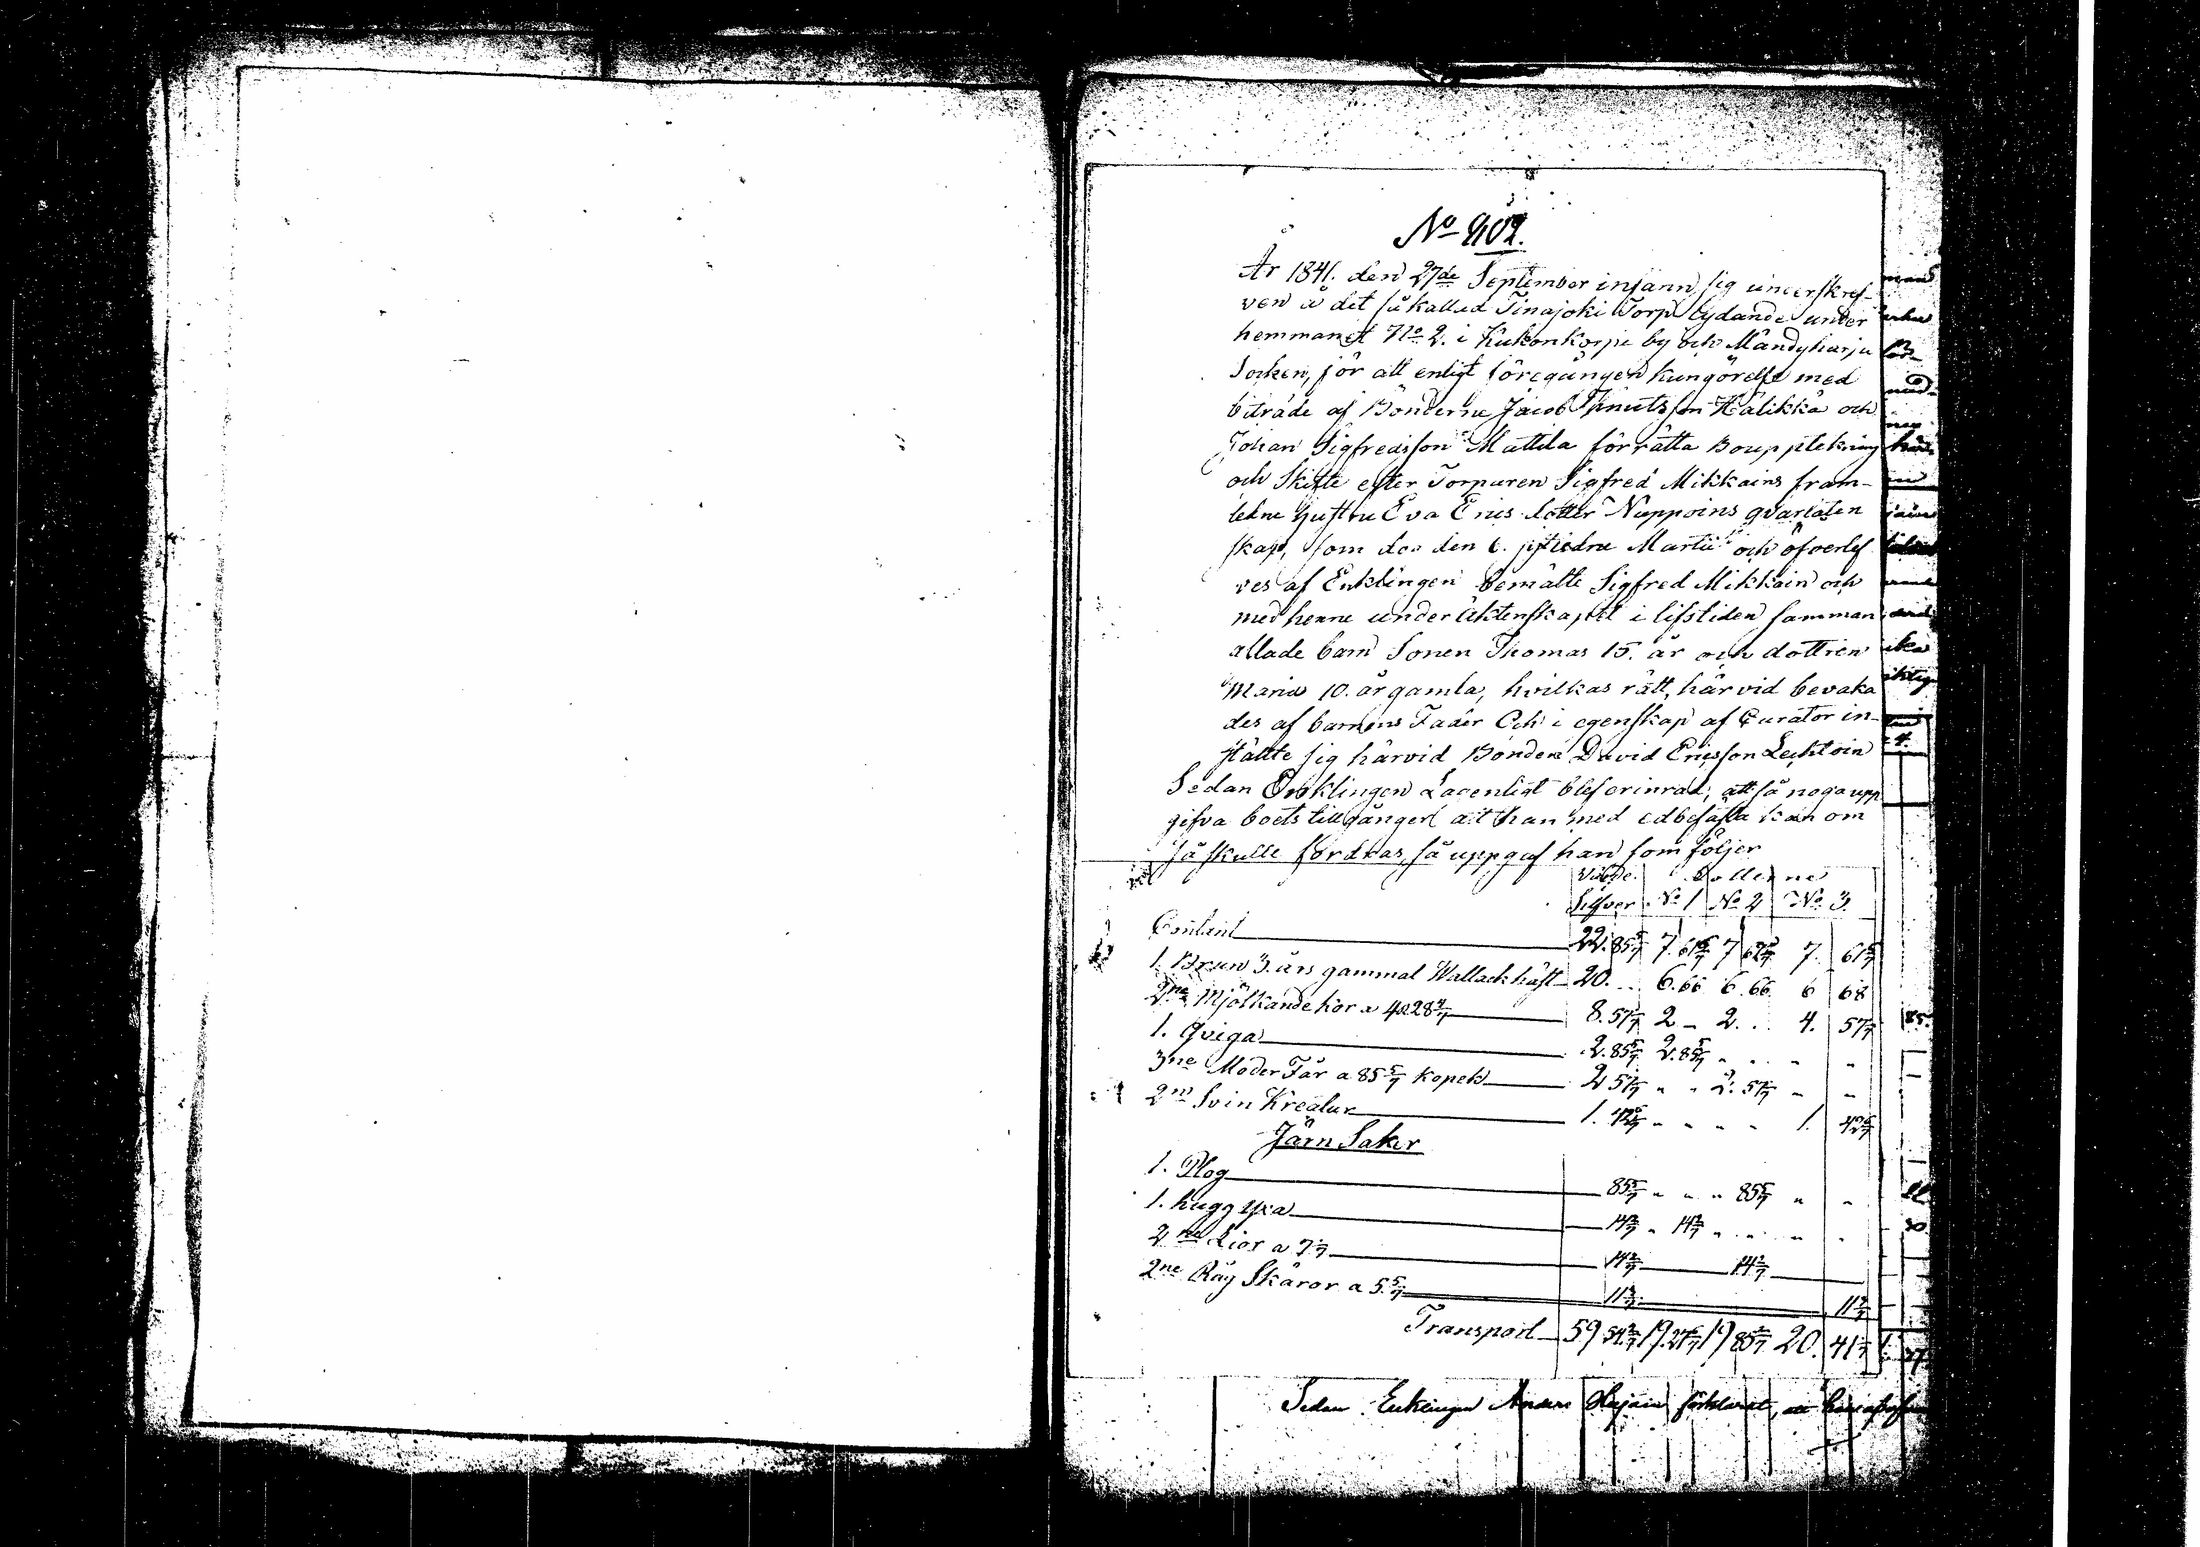 No 902.
År 1841. den 27de September infann sig underskref-
ven å det så kallad Tinajoki Torp lydande under
hemmanet No 2. i Kukonkorpi by och Mändyharju
Socken, för att enligt föregången kungörelse med
biträde af Bönderne Jacob Knutsson Hälikkä och
Johan Sigfredsson Mattila förrätta Bouppteckning
och Skifte efter Torparen Sigfred Mikkains fram-
ledne hustru Eva Erics dotter Nuppoins qvarlåten
skap, som dog den 6. sistledne Martii och öfverlef
ves af Enklingen bemälte Sigfred Mikkain och
med henne under äktenskapet i lifstiden samman
aflade barn Sonen Thomas 15. år och dottren
Maria 10. år gamla, hvilkas rätt, härvid bevaka
des af barnens Fader Och i egenskap af Curator in-
ställte sig härvid Bonden David Ericsson Lechtoin
Sedan Enklingen Lagenligt blef erinrad, att så noga upp
gifva boets tillgånger att han med ed befästa kan om
så skulle fordras, så uppgaf han som följer
Värde Lotterne
Silfver No 1 No 2 No 3.
Contant 22. 85 5/7 7. 61 6/7 7 62 2/7 7. 61 5/7
1. Brun 3. års gammal Wallack häst 20. .. 6. 66 6. 66 6 68
2ne Mjölkande kor a 4 R 28 4/7 8. 57 1/7 2 – 2. .. 4. 57 1/7
1. Qviga 2. 85 5/7 2. 85 5/7 " .. " "
3ne Moder Får a 85 5/7 kopek 2 57 1/7 " " 2. 57 1/7 " "
2ne Svin Kreatur 1. 42 6/7 " " " " 1. 42 6/7
Järn Saker
1. Plog 85 5/7 " " " 85 5/7 " "
1. hugg yxa 14 2/7 " 14 2/7 " " " "
2ne Lior a 7 1/7 14 2/7 14 2/7
2ne Råg Skäror a 5 5/7 11 3/7 11 3/7
Transport 59 54 2/7 19. 27 6/7 19 85 2/7 20. 41 1/7
Sedan Enklingen Anders förklarat, att